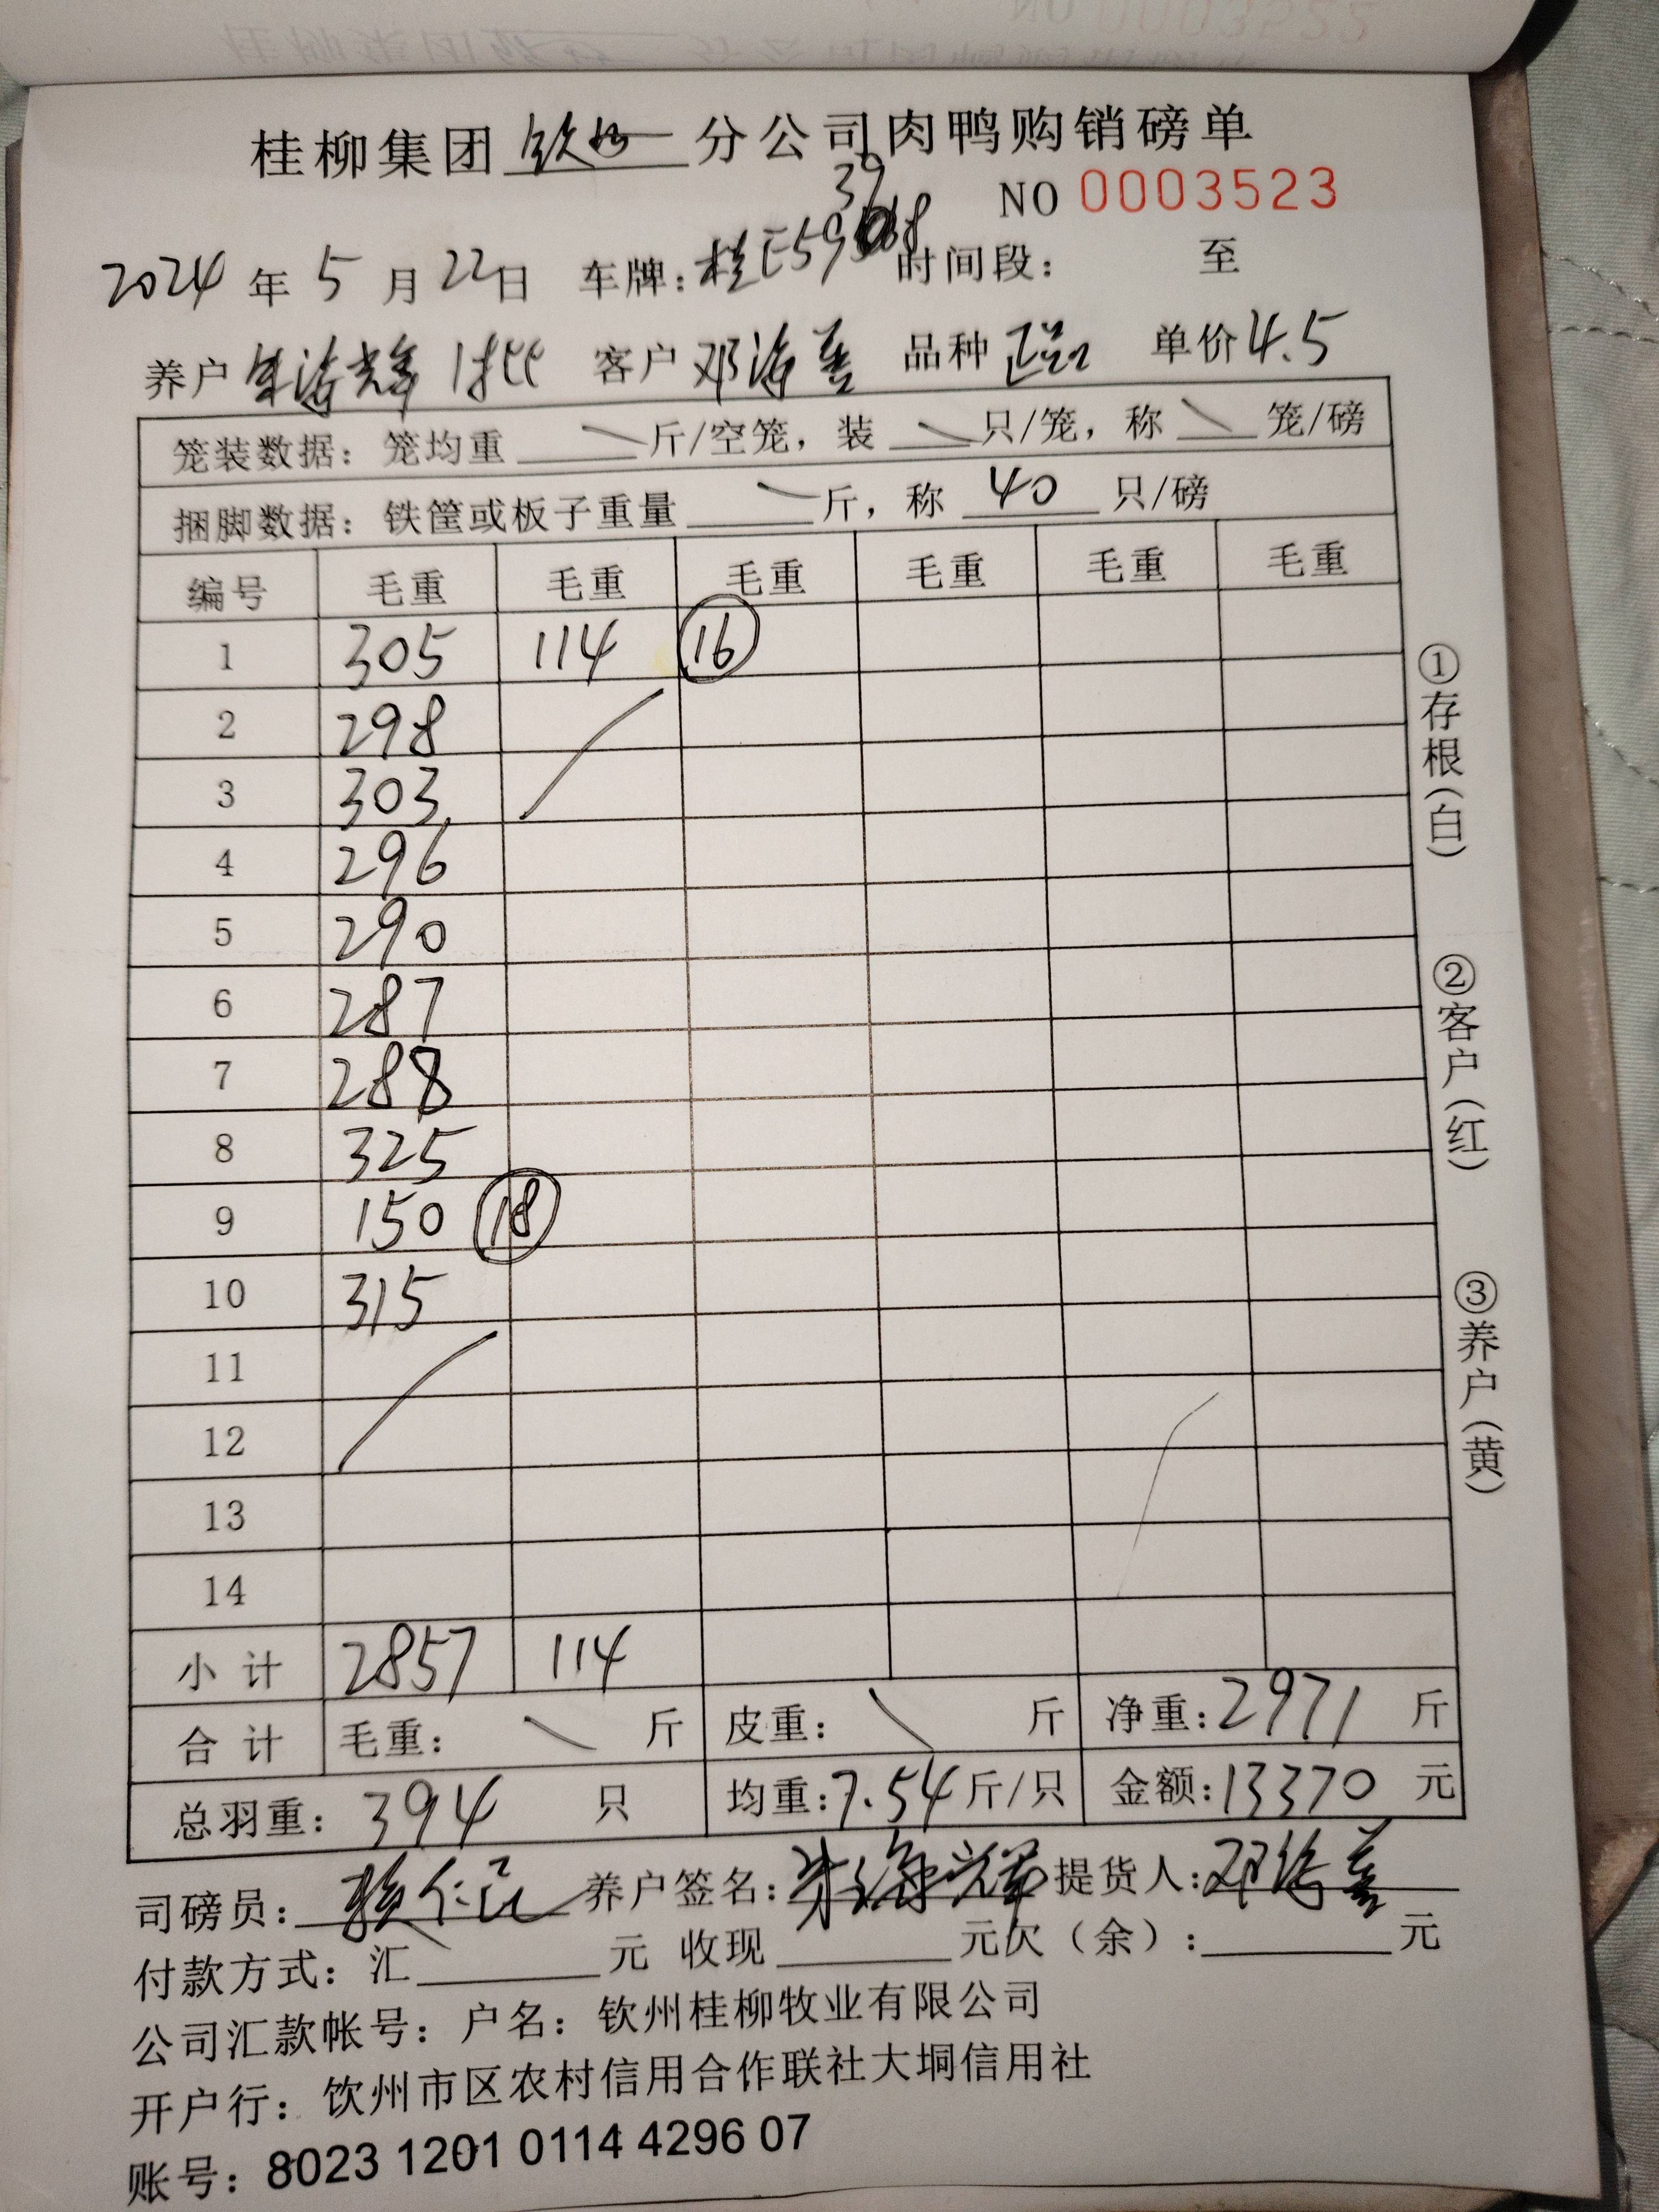 桂柳集团 钦州 分公司肉鸭购销磅单
NO 0003523
39
2024 年 5 月 22日 车牌: 桂E59 时间段: 至
养户 朱海辉 1批 客户 邓海善 品种 单价4.5
笼装数据: 笼均重 \ 斤/空笼, 装 \ 只/笼, 称 \ 笼/磅
捆脚数据: 铁筐或板子重量 \ 斤, 称 40 只/磅
编号 毛重 毛重 毛重 毛重 毛重 毛重
1 305 114 ⑯
2 298
3 303
4 296
5 290
6 287
7 288
8 325
9 150 ⑱
10 315
11
12
13
14
小计 2857 114
合计 毛重: \ 斤 皮重: \ 斤 净重: 2971 斤
总羽重: 394 只 均重: 7.54 斤/只 金额: 13370 元
司磅员: 养户签名: 朱海辉 提货人: 邓海善
付款方式: 汇 元 收现 元欠(余): 元
公司汇款帐号: 户名: 钦州桂柳牧业有限公司
开户行: 钦州市区农村信用合作联社大垌信用社
账号: 8023 1201 0114 4296 07
①存根(白)
②客户(红)
③养户(黄)